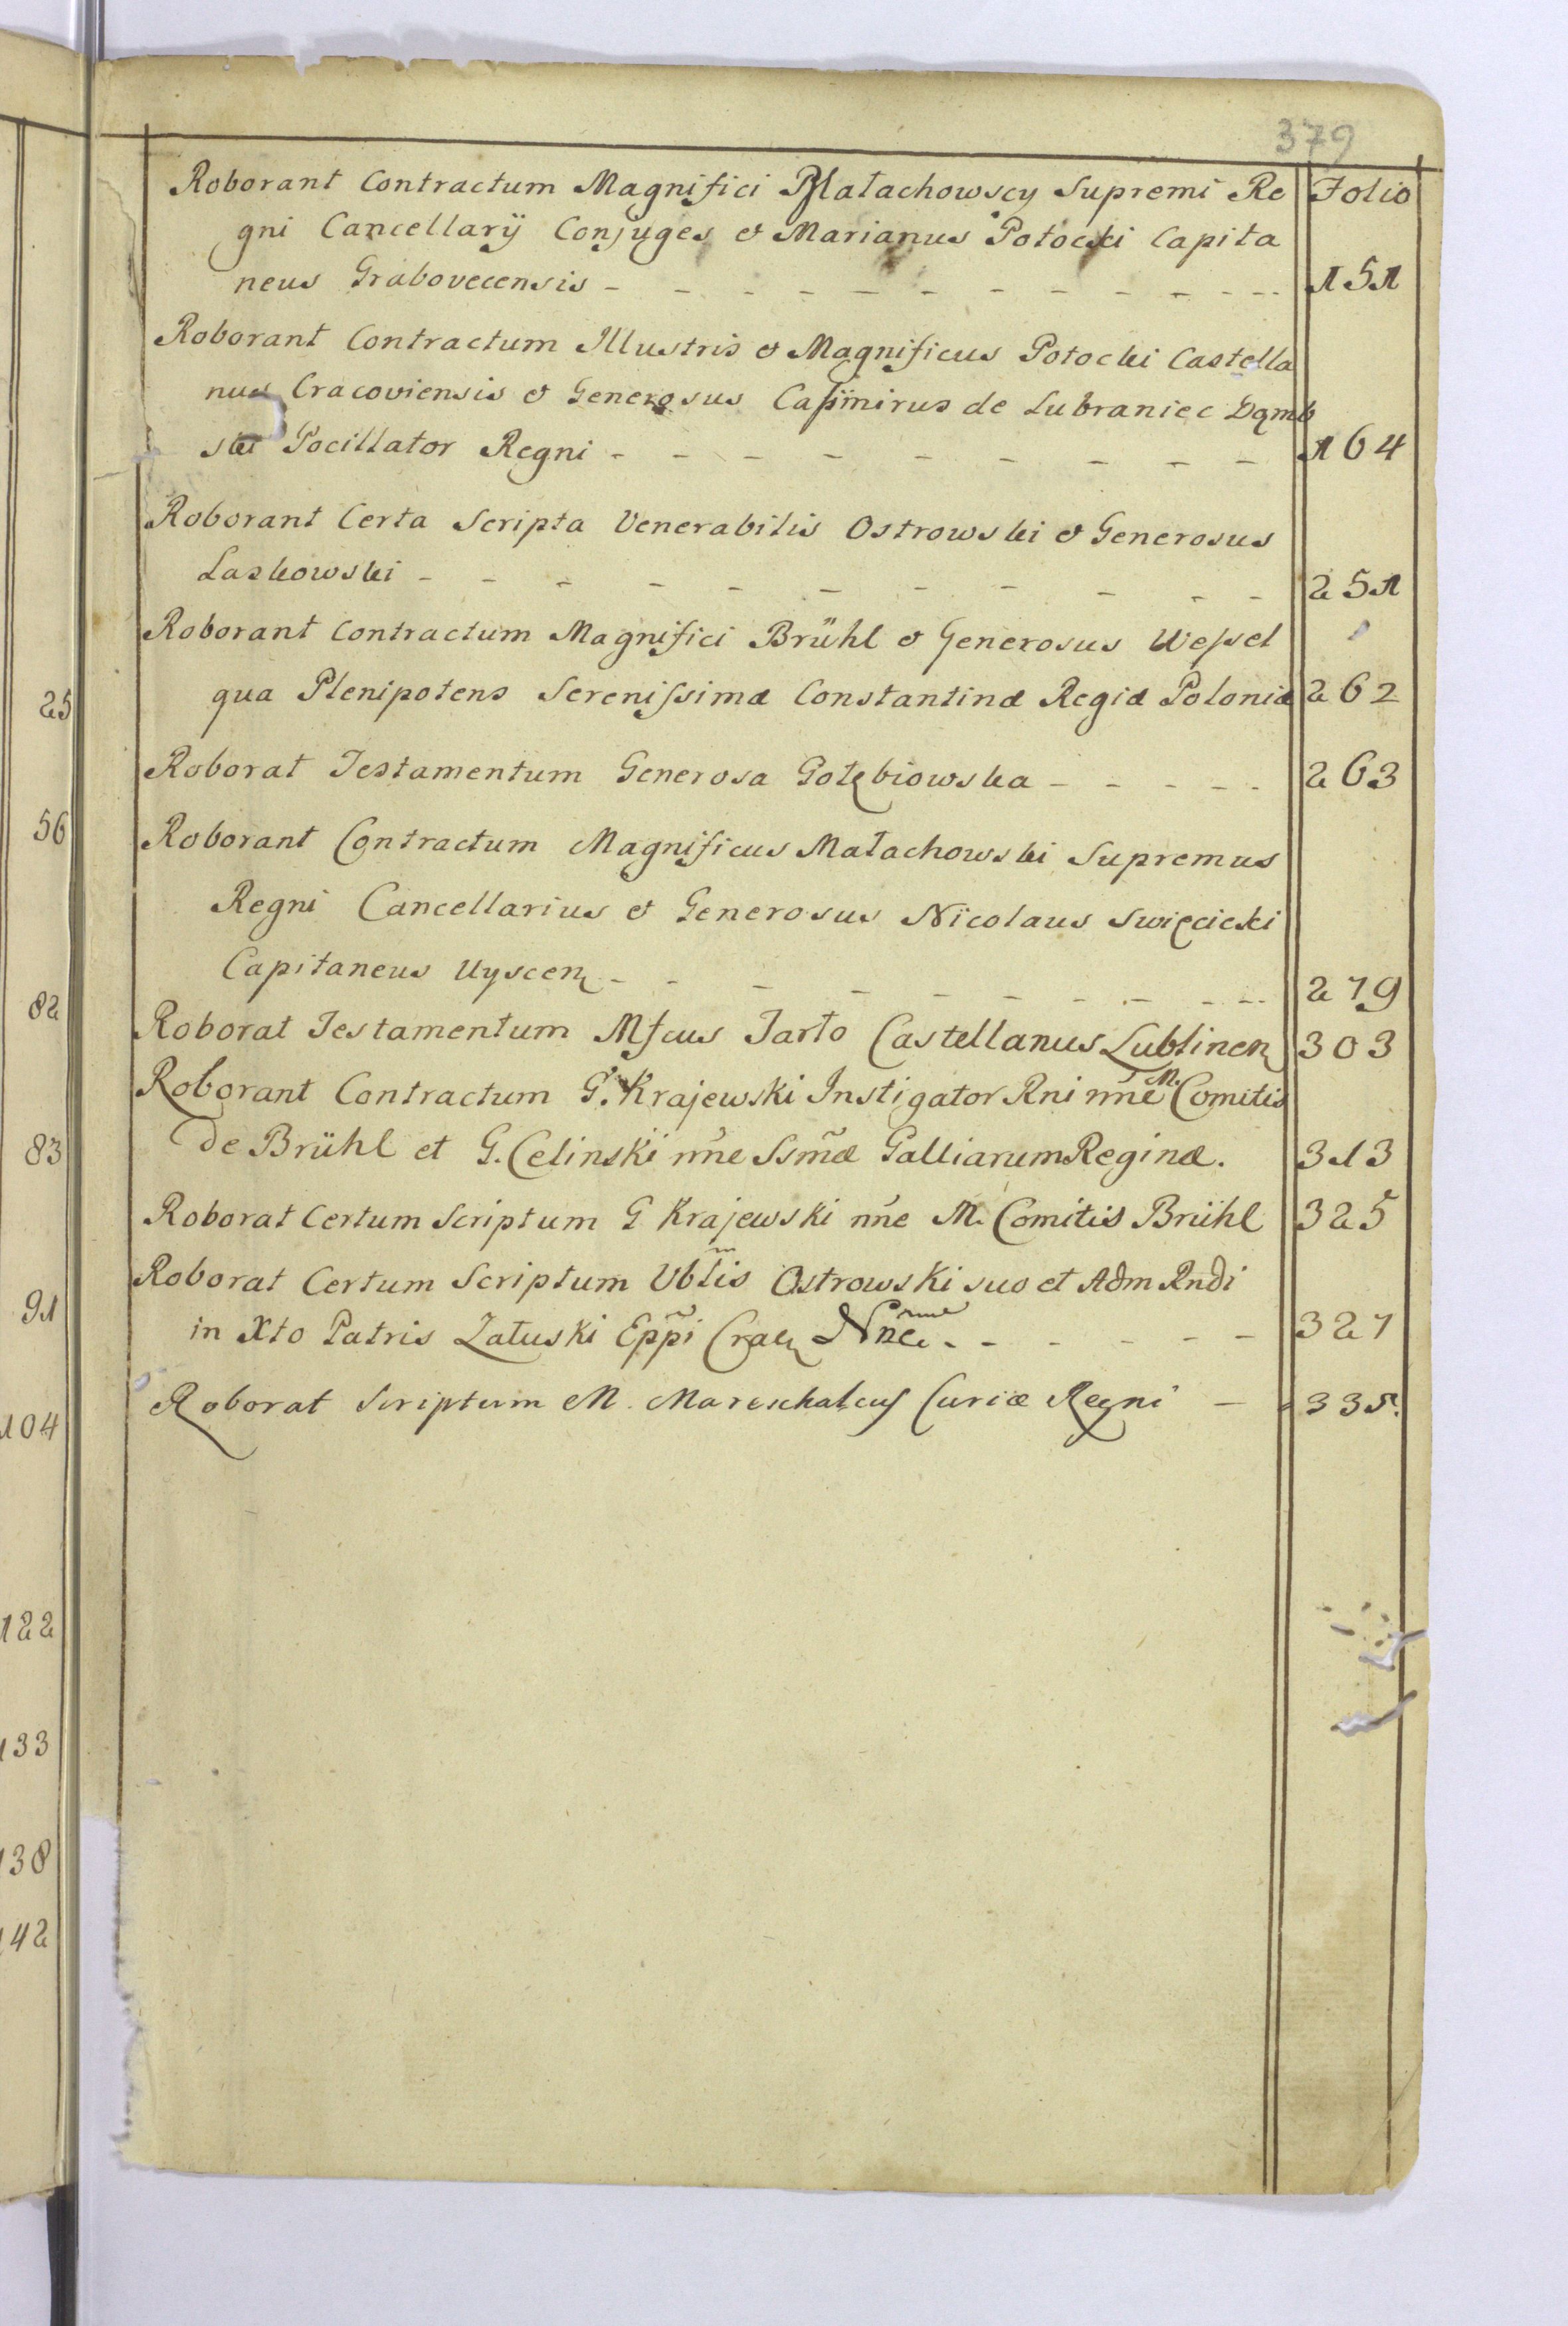 379
Roborant Contractum Magnifici Małachowscy Supremi Re Folio
gni Cancellarÿ Conjuges et Marianus Potocki Capita
neus Grabovecensis - - - - - - - - - - - - 151
Roborant Contractum Illustris et Magnificus Potocki Castella
nus Cracoviensis et Generosus Casimirus de Lubraniec Dąmb
ski Pocillator Regni - - - - - - - - - 164
Roborant Certa Scripta Venerabilis Ostrowski et Generosus
Laskowski - - - - - - - - - - - 251
Roborant Contractum Magnifici Brühl et Generosus Wessel
qua Plenipotens Serenissimæ Constantinæ Regiæ Poloniæ 262
Roborat Testamentum Generosa Gołębiowska - - - - - 263
Roborant Contractum Magnificus Małachowski Supremus
Regni Cancellarius et Generosus Nicolaus Swięcicki
Capitaneus Uyscen - - - - - - - - - - 279
Roborat Testamentum Mfcus Tarło Castellanus Lublinen 303
Roborant Contractum G. Krajewski Instigator Rni nñe M. Comitis
de Brühl et G. Celinski nñe Ssm̃æ Galliarum Reginæ. 313
Roborat Certum Scriptum G Krajewski nñe M. Comitis Brühl 325
Roborat Certum Scriptum Vbłis Ostrowski suo et Adm Rndi
in Xto Patris Załuski Epp̃i Crac Nne. - - - - - - 327
Roborat Scriptum M. Mareschalcus Curiæ Regni - 335.
25
56
82
83
91
104
122
133
138
142